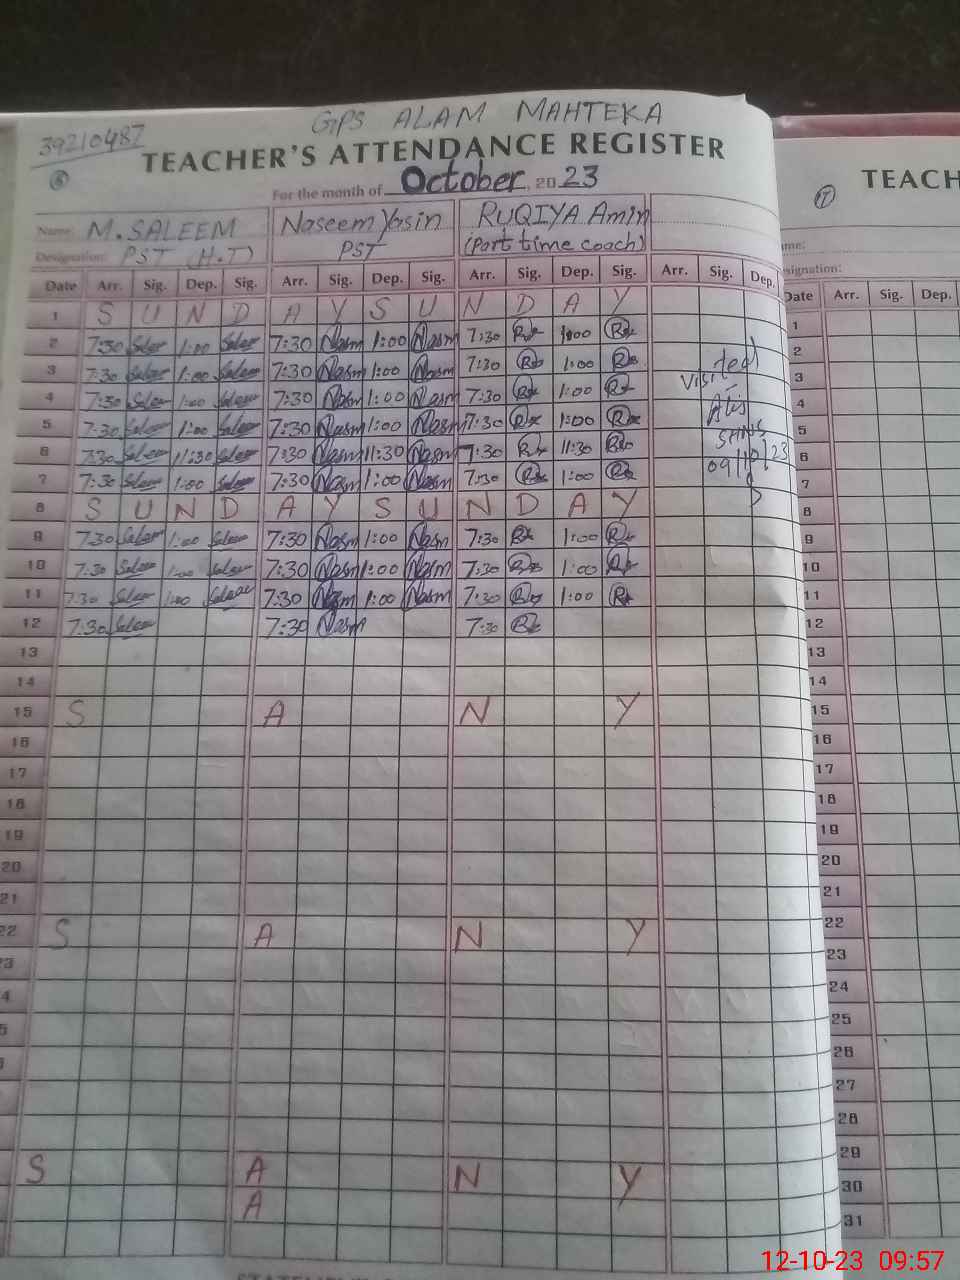 GPS ALAM MAHTEKA
39210487
TEACHER'S ATTENDANCE REGISTER
For the month of October, 20 23
Name: M.SALEEM Naseem Yasin RUQIYA Amin
Designation: PST (H.T) PST (Part time coach)
Date Arr. Sig. Dep. Sig. Arr. Sig. Dep. Sig. Arr. Sig. Dep. Sig. Arr. Sig. Dep.
1 S U N D A Y S U N D A Y
2 7:30 Saleem 1:00 Saleem 7:30 Nasm 1:00 Nasm 7:30 1:00
3 7:30 Saleem 1:00 Saleem 7:30 Nasm 1:00 Nasm 7:30 1:00
4 7:30 Saleem 1:00 Saleem 7:30 Nasm 1:00 Nasm 7:30 1:00
5 7:30 Saleem 1:00 Saleem 7:30 Nasm 1:00 Nasm 7:30 1:00
6 7:30 Saleem 11:30 Saleem 7:30 Nasm 11:30 Nasm 7:30 11:30
7 7:30 Saleem 1:00 Saleem 7:30 Nasm 1:00 Nasm 7:30 1:00
8 S U N D A Y S U N D A Y
9 7:30 Saleem 1:00 Saleem 7:30 Nasm 1:00 Nasm 7:30 1:00
10 7:30 Saleem 1:00 Saleem 7:30 Nasm 1:00 Nasm 7:30 1:00
11 7:30 Saleem 1:00 Saleem 7:30 Nasm 1:00 Nasm 7:30 1:00
12 7:30 Saleem 7:30 Nasm 7:30
13
14
15 S A N Y
16
17
18
19
20
21
22 S A N Y
23
S A N Y
A
Visited
09/10/23
TEACH
Date Arr. Sig. Dep.
1
2
3
4
5
6
7
8
9
10
11
12
13
14
15
16
17
18
19
20
21
22
23
24
25
26
27
28
29
30
31
12-10-23 09:57